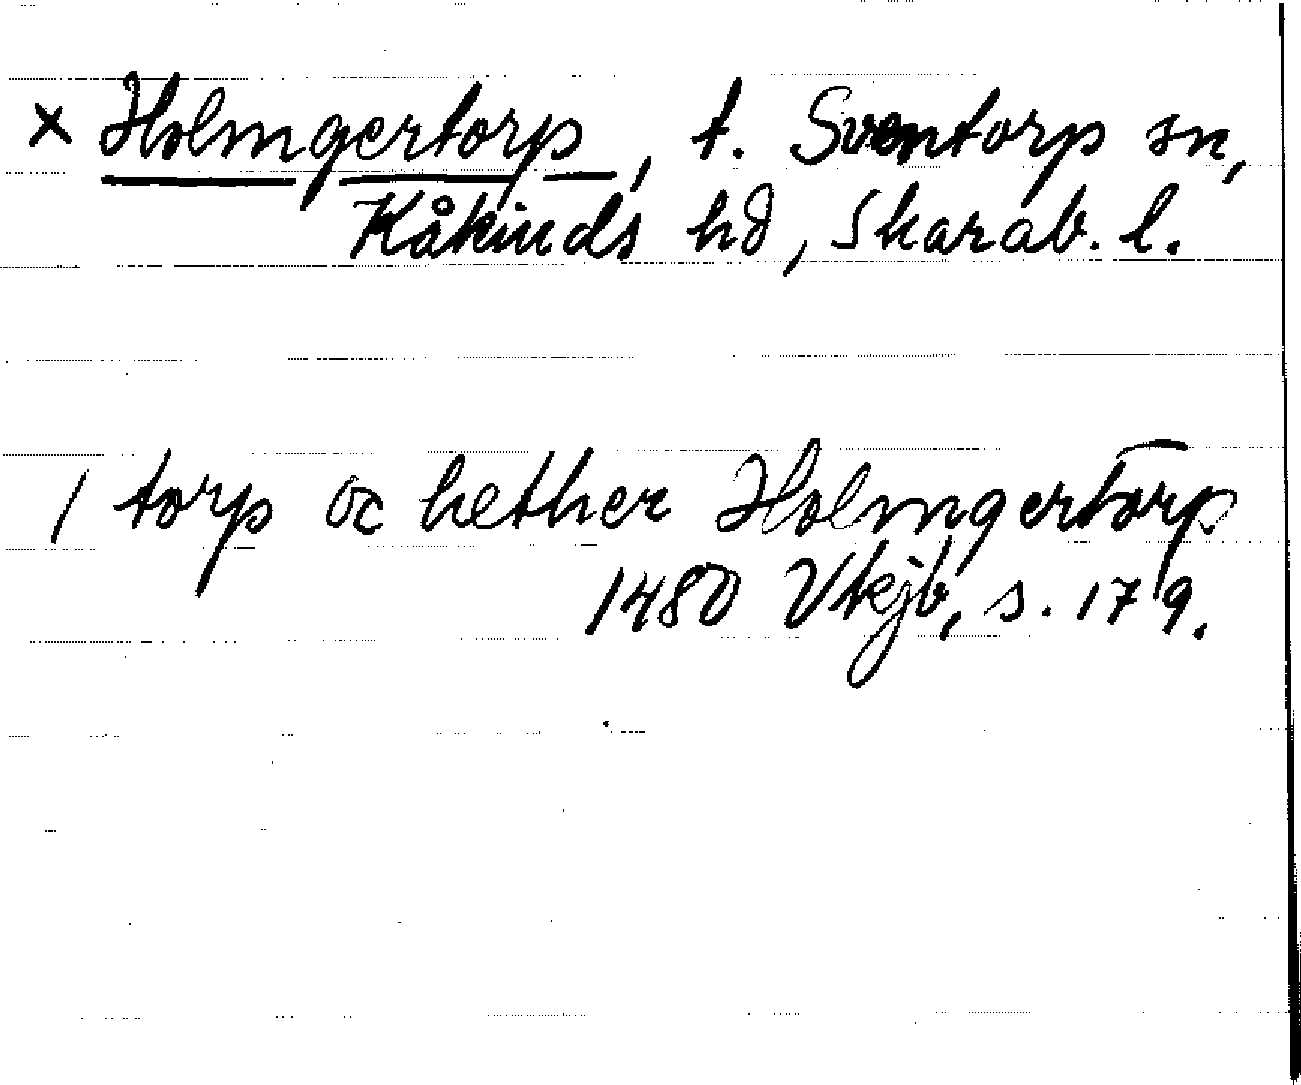 x Holmgertorp, t. Sventorp sn,
Kåkinds hd, Skarab. l.
1 torp oc hether Holmgertorp
1480 Vkjb, s. 179.